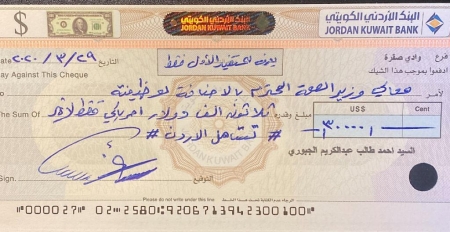 البنك الأردني الكويتي
JORDAN KUWAIT BANK
البنك الأردني الكويتي
JORDAN KUWAIT BANK
$
فرع وادي صقرة
يصرف للمستفيد الأول فقط
التاريخ ٢٠٢٠/٣/٢٩
ate
ادفعوا بموجب هذا الشيك
ay Against This Cheque
لأمر معالي وزير الصحة المحترم بالاضافة لوظيفته
The Sum Of
مبلغ وقدره ثلاثون الف دولار أمريكي فقط لاغير
# تستاهل الاردن #
US$ Cent
٣٠٠٠٠
السيد احمد طالب عبدالكريم الجبوري
Sign.
التوقيع
Please do not write under this line
⑈000027⑈ 02⑉2580⑆9206713942300100⑈